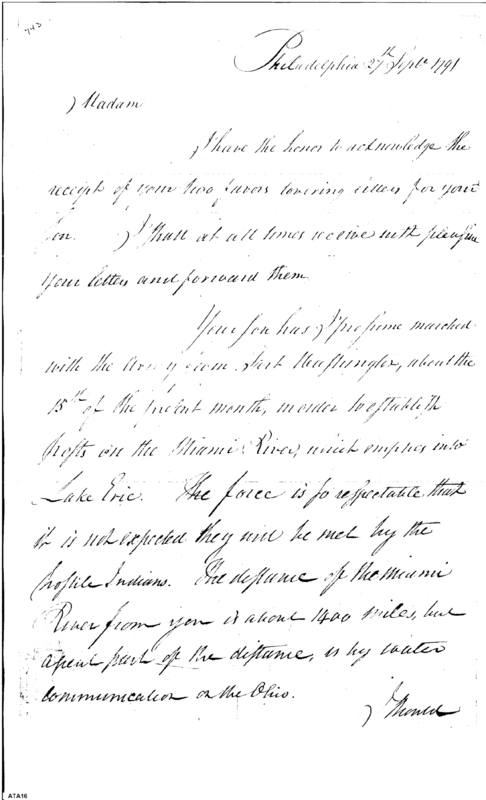 743
Philadelphia 27th Septr 1791
Madam
I have the honor to acknowledge the
receipt of your two favors covering letters for your
son. I shall at all times receive with pleasure
your letters and forward them
Your son has I presume marched
with the Army from Fort Washington, about the
15th of the present month, in order to establish
posts on the Miami River, which empties into
Lake Erie. The force is so respectable that
it is not expected they will be met by the
hostile Indians. The distance of the Miami
River from you is about 1400 miles, but
a great part of the distance, is by water
communication on the Ohio.
I should
ATA16